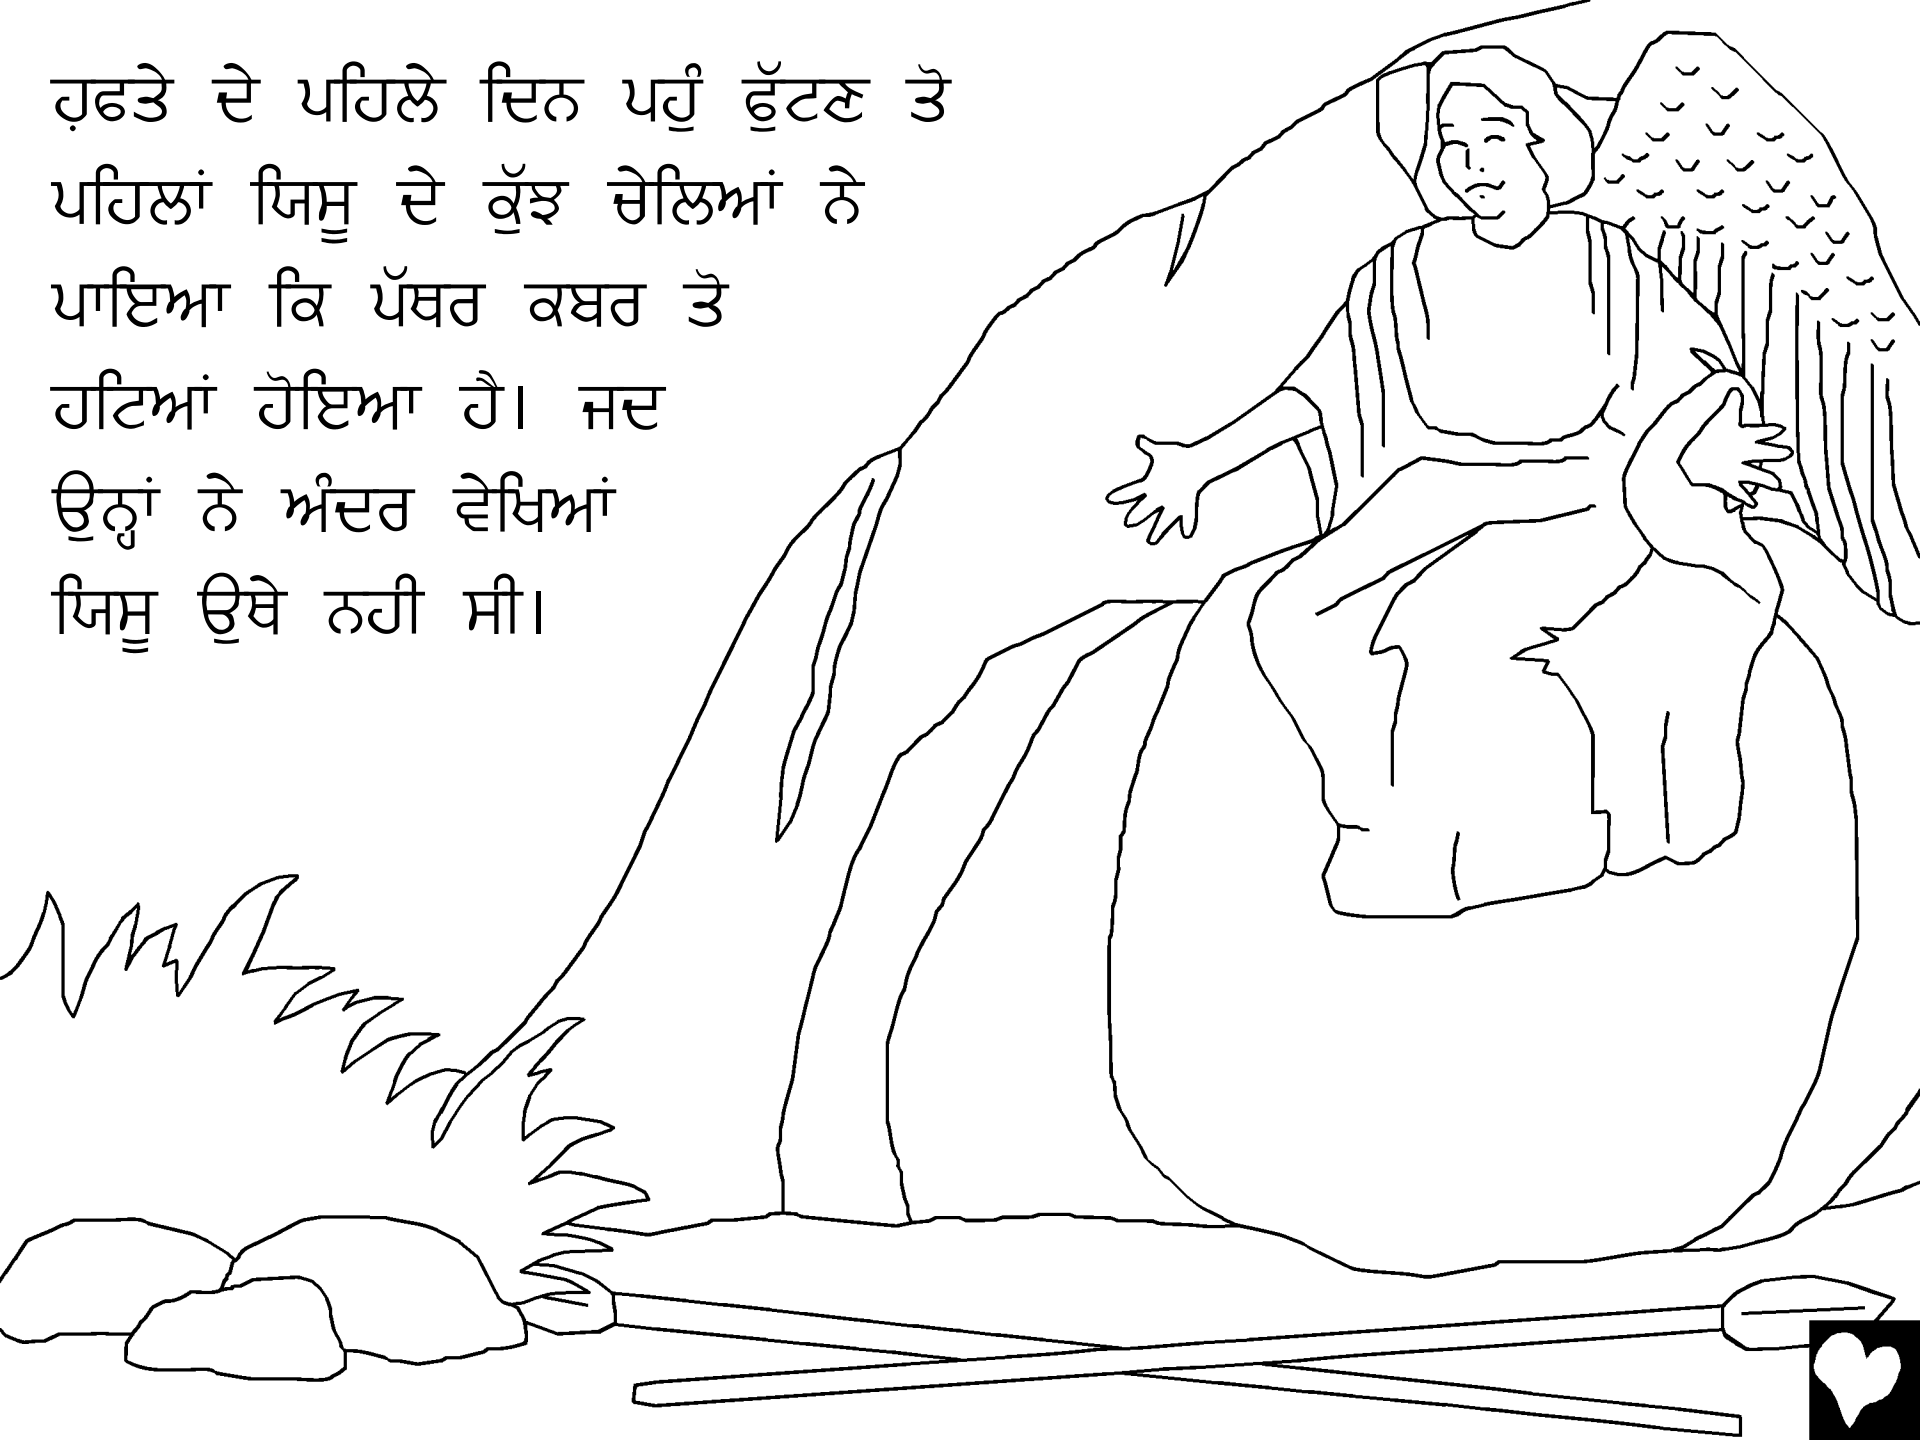 ਹ਼ਫਤੇ ਦੇ ਪਹਿਲੇ ਦਿਨ ਪਹੁੰ ਫੁੱਟਣ ਤੋ
ਪਹਿਲਾਂ ਯਿਸੂ ਦੇ ਕੁੱਝ ਚੇਲਿਆਂ ਨੇ
ਪਾਇਆ ਕਿ ਪੱਥਰ ਕਬਰ ਤੋ
ਹਟਿਆਂ ਹੋਇਆ ਹੈ। ਜਦ
ਉਨ੍ਹਾਂ ਨੇ ਅੰਦਰ ਵੇਖਿਆਂ
ਯਿਸੂ ਉਥੇ ਨਹੀ ਸੀ।